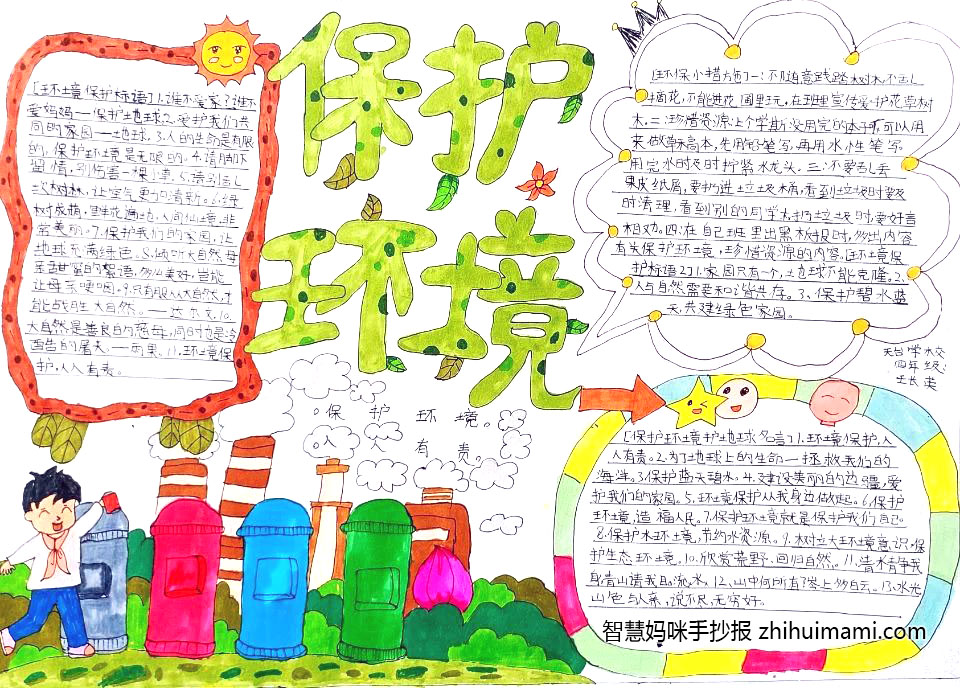 保护
环境
[环境保护标语]1.谁不爱家?谁不
爱妈妈——保护地球2.爱护我们共
同的家园——地球。3.人的生命是有限
的,保护环境是无限的。4.请脚下
留情,别伤害一棵小草。5.请别乱
次树林,让空气更加清新。6.绿
树成荫,野花遍地,人间仙境,非
常美丽。7.保护我们的家园,让
地球充满绿色。8.倾听大自然母
亲甜蜜的絮语,多么美好,岂能
让母亲哽咽。9.只有服从大自然,才
能战胜大自然。——达尔文。10.
大自然是善良的慈母,同时也是冷
酷的屠夫。——雨果。11.环境保
护,人人有责。
[环保小措施]一:不随意践踏树木,不乱
摘花,不能进花圃里玩,在班里宣传爱护花草树
木。二:珍惜资源,上个学期没用完的本子,可以用
来做草稿本,先用铅笔写,再用水性笔写。
用完水时及时拧紧水龙头。三:不要乱丢
果皮纸屑,要扔进垃圾桶,看到垃圾时要及
时清理,看到别的同学乱扔垃圾时,要好言
相劝。四:在自己班里出黑板报时,多出内容
有关保护环境,珍惜资源的内容。[环境保
护标语2]1.家园只有一个,地球不能克隆。2.
人与自然需要和谐共存。3.保护碧水蓝
天,共建绿色家园。
天台学校
四年级:
保护环境。
人人有责。
[保护环境护地球名言]1.环境保护,人
人有责。2.为了地球上的生命—拯救我们的
海洋。3.保护蓝天碧水。4.建设美丽的边疆,爱
护我们的家园。5.环境保护从我身边做起。6.保护
环境,造福人民。7.保护环境就是保护我们自己。
8.保护水环境,节约水资源。9.树立大环境意识,保
护生态环境。10.欣赏荒野,回归自然。11.
12.山中何所有?岭上多白云。13.水光
山色与人亲,说不尽,无穷好。
智慧妈咪手抄报 zhihuimami.com